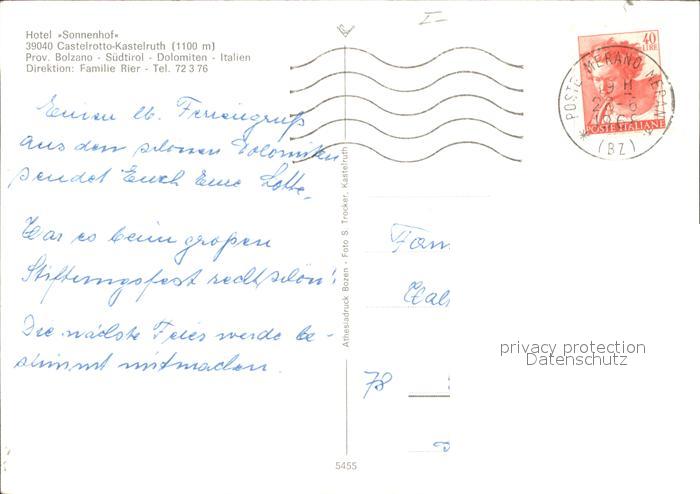 Hotel »Sonnenhof«
39040 Castelrotto-Kastelruth (1100 m)
Prov. Bolzano - Südtirol - Dolomiten - Italien
Direktion: Familie Rier - Tel. 72 3 76
Einen lb. Feriengruß
aus den schönen Dolomiten
sendet Euch Eure Lotte.
War es beim großen
Stiftungsfest recht schön?
Die nächste Feier werde be-
stimmt mitmachen.
Athesiadruck Bozen - Foto S. Trocker, Kastelruth
5455
I-
40
LIRE
POSTE ITALIANE
POSTE MERANO MERAN
19 H
(BZ)
Fam.
78
privacy protection
Datenschutz